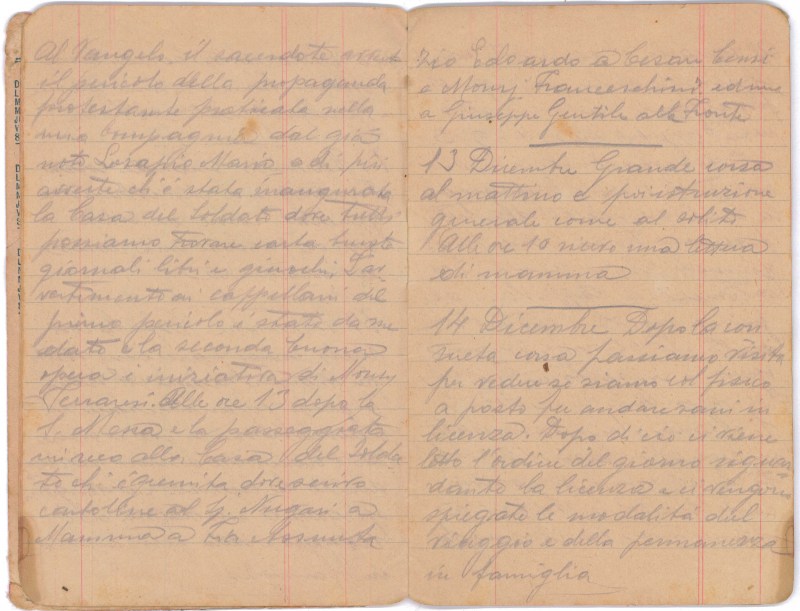 Al Vangelo, il sacerdote
il pericolo della propaganda
protestante praticata nella
mia compagnia dal già
noto Losapio Mario e di più
che è stata inaugurata
la Casa del Soldato dove tutti
possiamo trovare carta buste
giornali libri e giuochi. L'av
vertimento ai cappellani del
primo pericolo è stato da me
dato e la seconda buona
opera è iniziativa di Mons
Ferraresi. Alle ore 13 dopo la
S. Messa e la passeggiata
mi reco alla Casa del Solda
to chi è gremita dove scrivo
cartoline al S. Nugari a
Mamma a Zia Assunta
Zio Edoardo a Cesare Consi
a Mons Franceschini ed una
a Giuseppe Gentile alla Fronte
13 Dicembre Grande corsa
al mattino e poi istruzione
generale come al solito
Alle ore 10 ricevo una lettera
di mamma
14 Dicembre Dopo la con
sueta corsa passiamo visita
per vedere se siamo col fisico
a posto per andare sani in
licenza. Dopo di ciò ci viene
letto l'ordine del giorno riguar
dante la licenza e ci vengono
spiegate le modalità del
viaggio e della permanenza
in famiglia
DLMMJVS
DLMMJVS
DLMMJVS